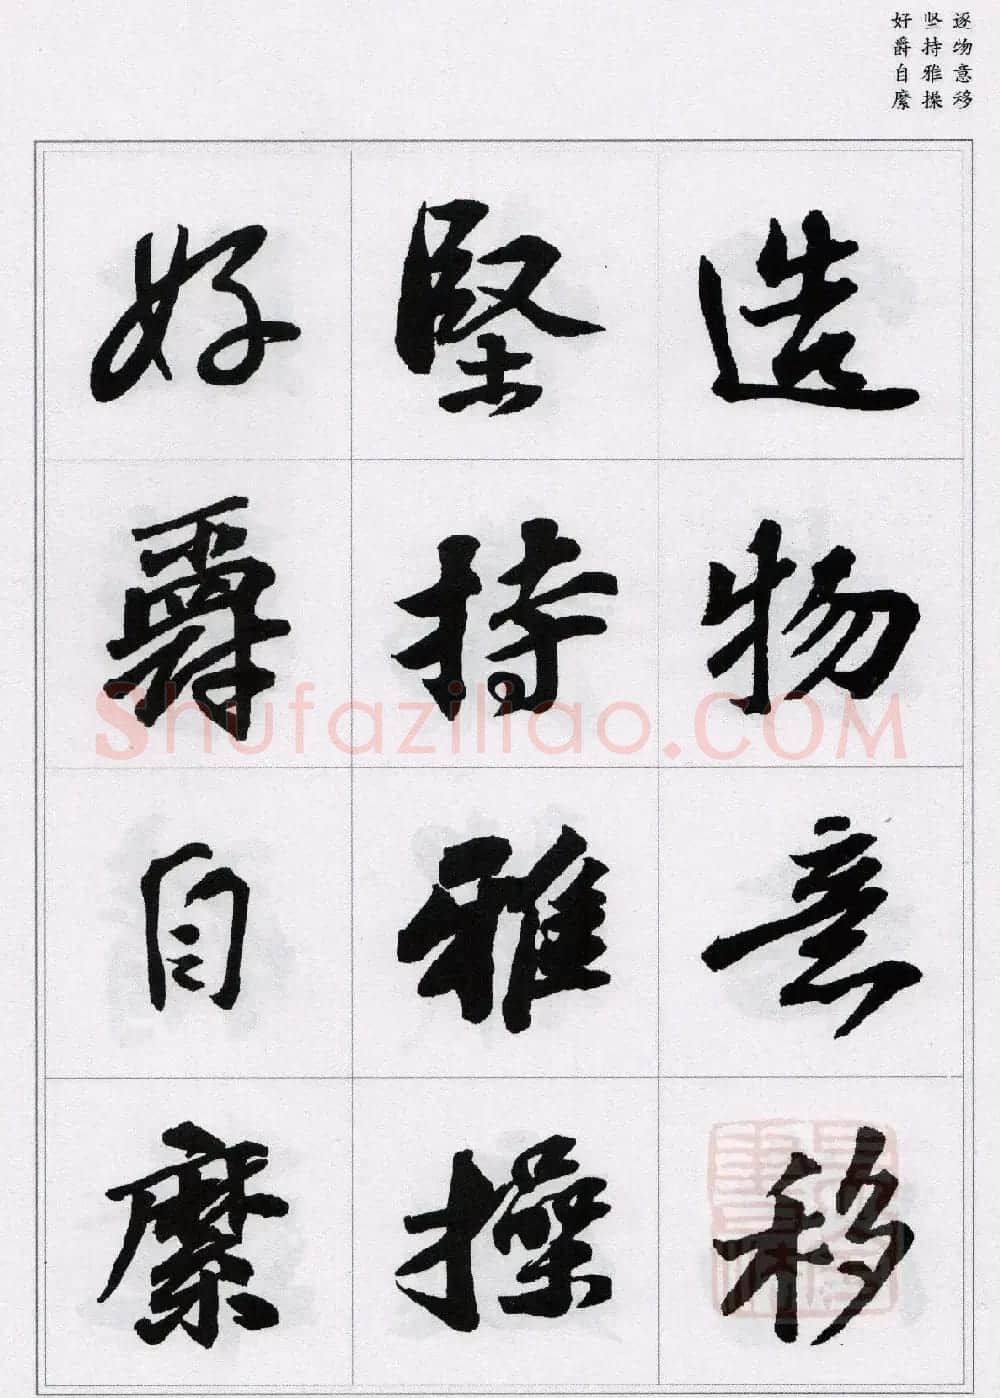 逐物意移
坚持雅操
好爵自縻
造物意移
堅持雅操
好爵自縻
Shufaziliao.COM